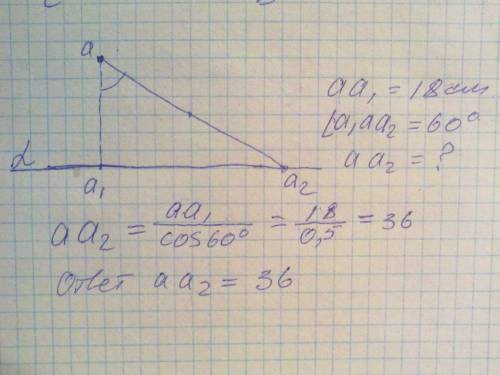 a
aa₁ = 18 см
∠a₁aa₂ = 60°
aa₂ = ?
α
a₁
a₂
aa₂ = aa₁/cos60° = 18/0,5 = 36
Ответ aa₂ = 36